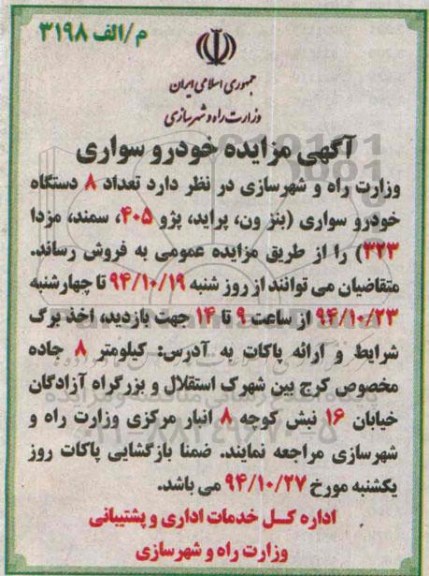 م/الف ۳۱۹۸
جمهوری اسلامی ایران
وزارت راه و شهرسازی
آگهی مزایده خودرو سواری
وزارت راه و شهرسازی در نظر دارد تعداد ۸ دستگاه
خودرو سواری (بنز ون، پراید، پژو ۴۰۵، سمند، مزدا
۳۲۳) را از طریق مزایده عمومی به فروش رساند.
متقاضیان می توانند از روز شنبه ۹۴/۱۰/۱۹ تا چهارشنبه
۹۴/۱۰/۲۳ از ساعت ۹ تا ۱۴ جهت بازدید، اخذ برگ
شرایط و ارائه پاکات به آدرس: کیلومتر ۸ جاده
مخصوص کرج بین شهرک استقلال و بزرگراه آزادگان
خیابان ۱۶ نبش کوچه ۸ انبار مرکزی وزارت راه و
شهرسازی مراجعه نمایند. ضمنا بازگشایی پاکات روز
یکشنبه مورخ ۹۴/۱۰/۲۷ می باشد.
اداره کل خدمات اداری و پشتیبانی
وزارت راه و شهرسازی